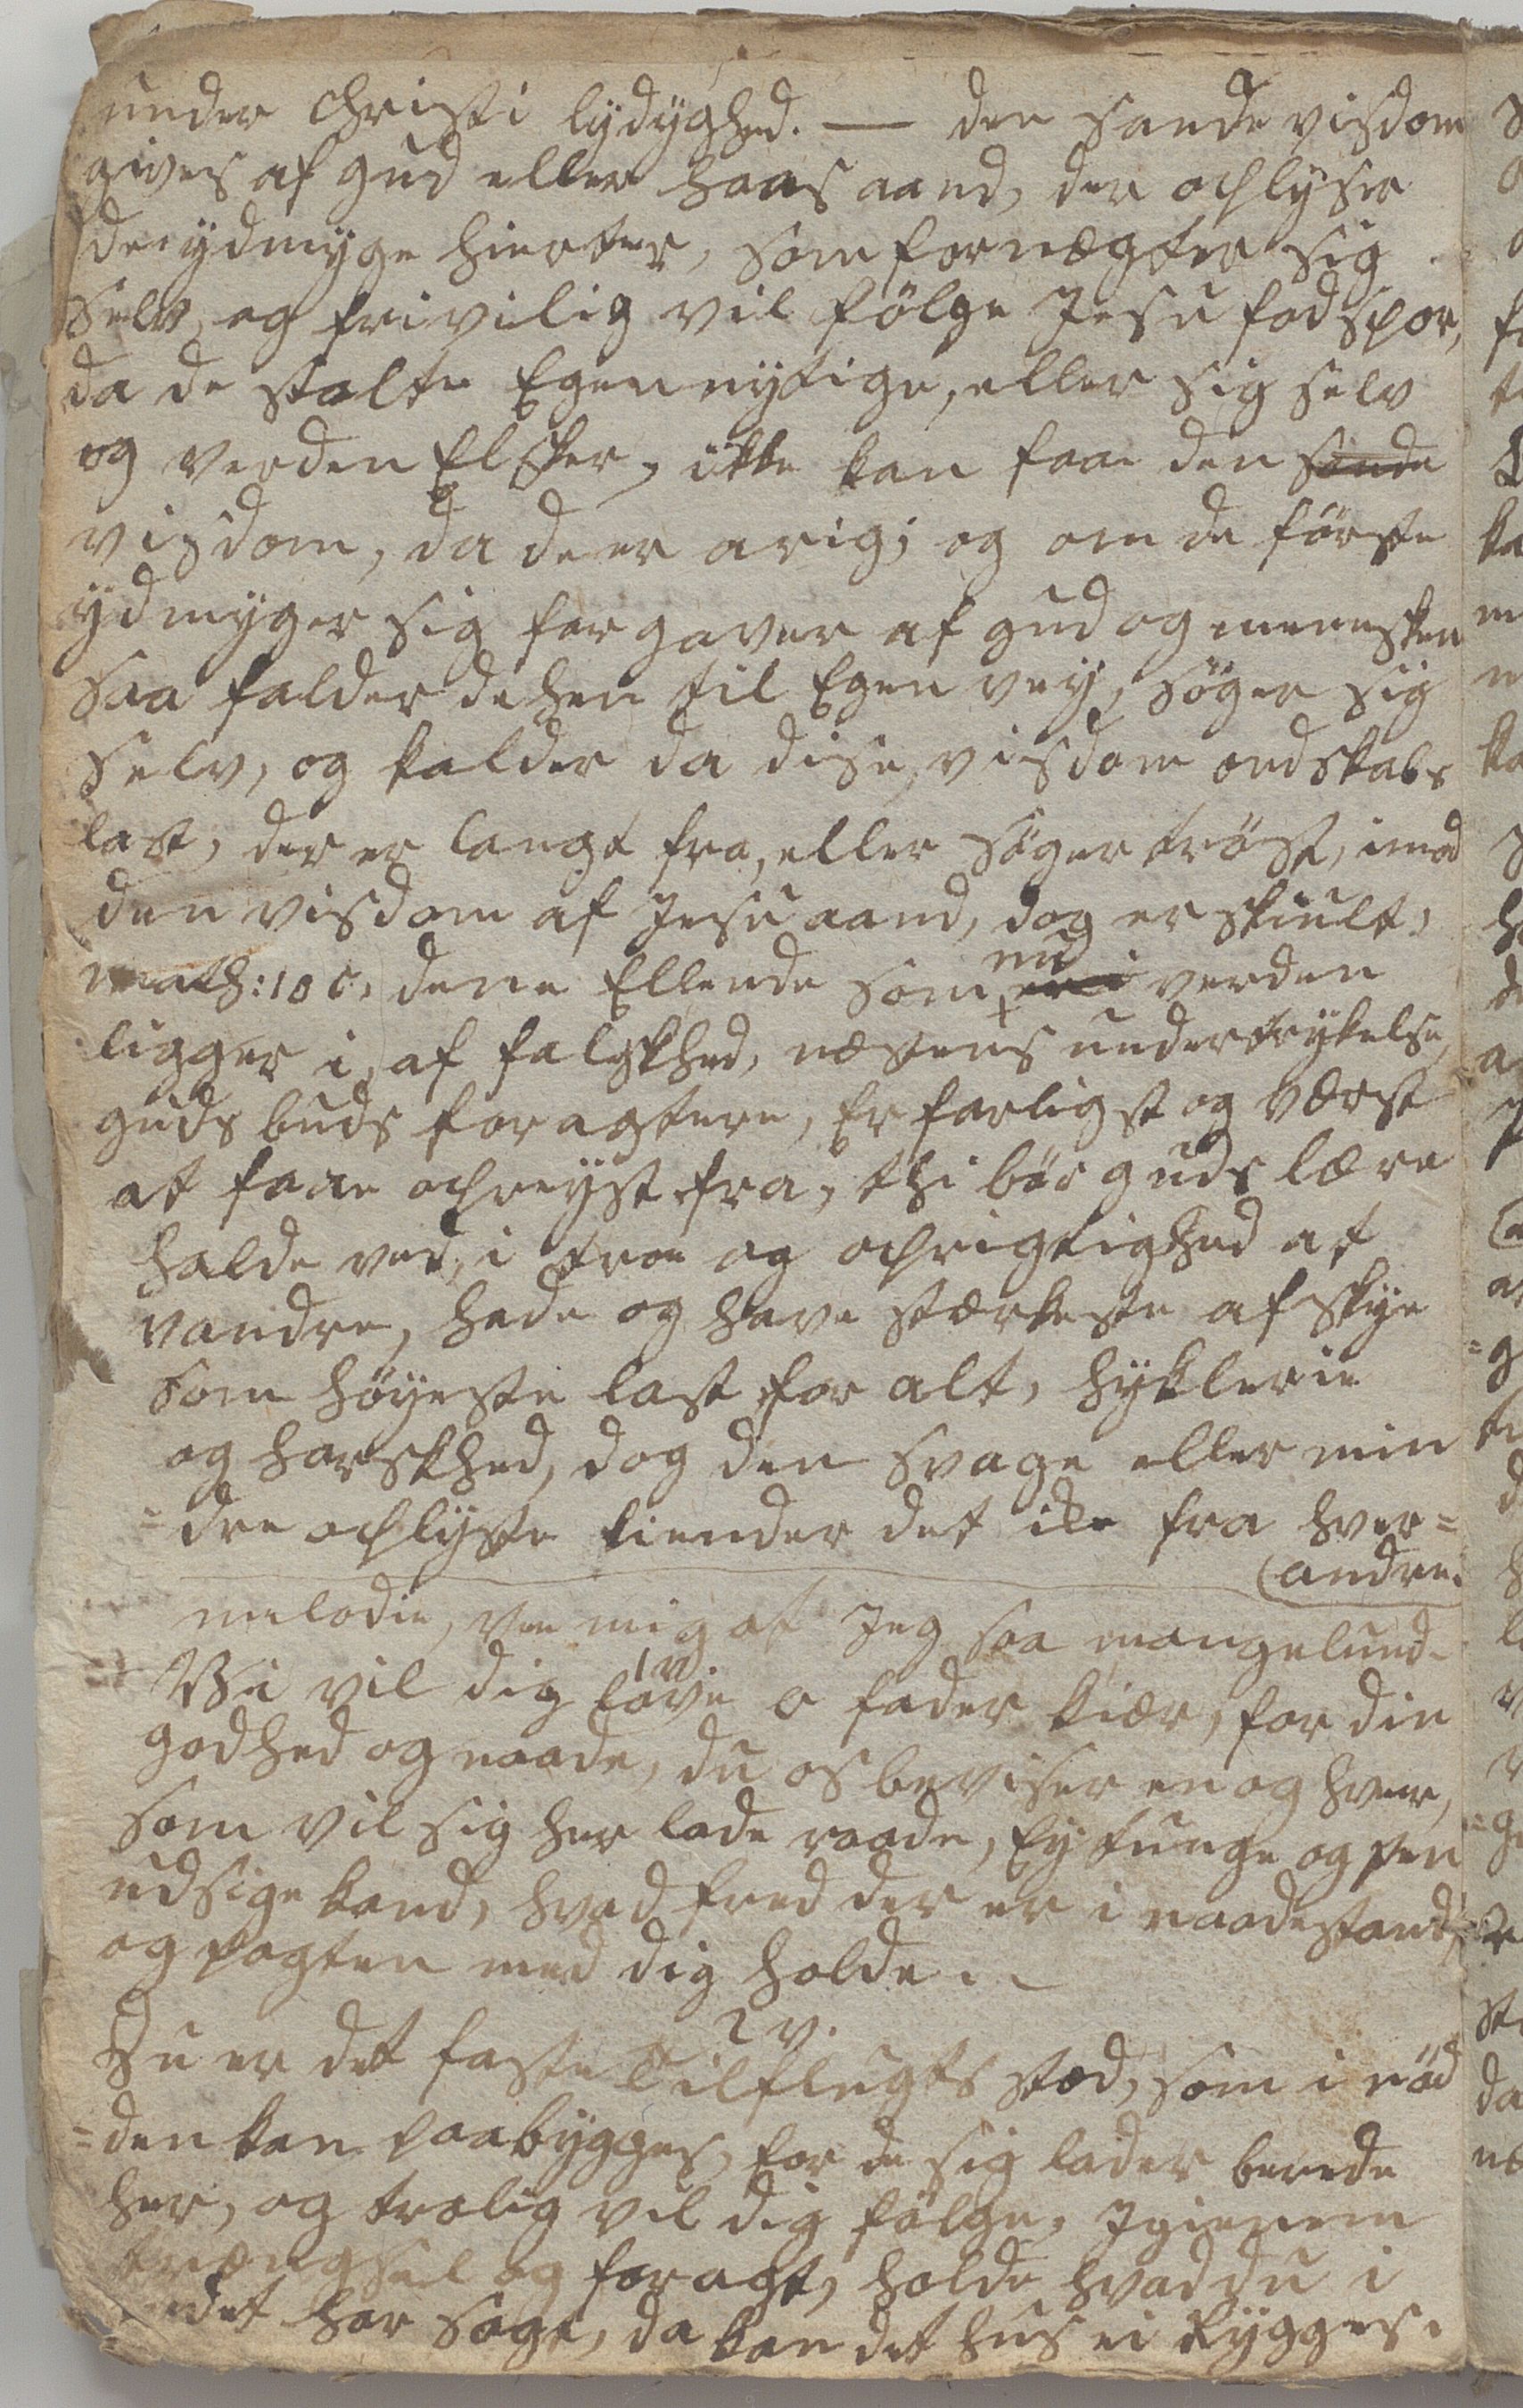 under Christi lydyghed. — den sande visdom
gives af gud eller hans aand, der oplyser
de ydmyge hierter, som fornegter sig
selv, og frivilig vil fölge Jesu fodspor,
da de stolte Egennytige, eller sig selv
og verden Elsker, ikke kan faae den sande
visdom, da de er arig; og om de förste
ydmyger sig for gaver af gud og mennesken
saa falder de hen til Egen vey, söger sig
selv, og kalder da dise, visdom ondskabs
last, der er langt fra, eller söger tröst, imod
den visdom af Jesu aand, dog er skiult,
math: 10 c, dene Ellende som nu verden
ligger i, af falskhed, næstens undertrykelse,
guds buds foragtere, Er farligst og værst
at faae opreyst fra, thi bör guds lære
holde ved, i troe og oprigtighed at
vandre, hade og have stærkeste afskye
som höyeste last for alt, hyklerie
og harskhed, dog den svage eller min
=dre oplyste kiender det ike fra hver=
(andre.
melodie, Vee mig at Jeg saa mangelund.
1 v.
Vi vil dig love o fader kiær, for din
godhed og naade, du os beviser en og hver,
som vil sig her lade raade, Ey tunge og pen
udsige kand, hvad fred der er i naadestand,
og pagten med dig holde.
2 v.
Du er det faste tilflugts stæd, som i nöd
=den kan paabygges, for de sig lader berede
her, og trolig vil dig fölge, Igienem
trængsel og foragt, holde hvad du i
ordet har sagt, da kan det hus ei Rygges.